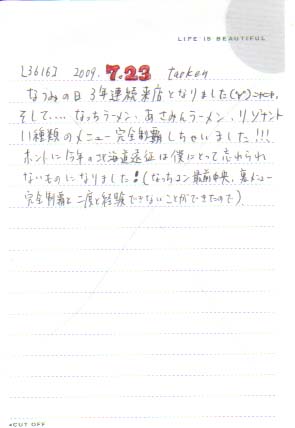 LIFE IS BEAUTIFUL
[3616] 2009. 7.23 taoken
なつみの日 3年連続来店となりました(^v^)
そして.... なっちラーメン、あさみんラーメン、リゾナント
11種類のメニュー完全制覇しちゃいました!!!
ホントに今年の北海道遠征は僕にとって忘れられ
ないものになりました!(なっちコン最前中央、裏メニュー
完全制覇と二度と経験できないことができたので)
◂CUT OFF